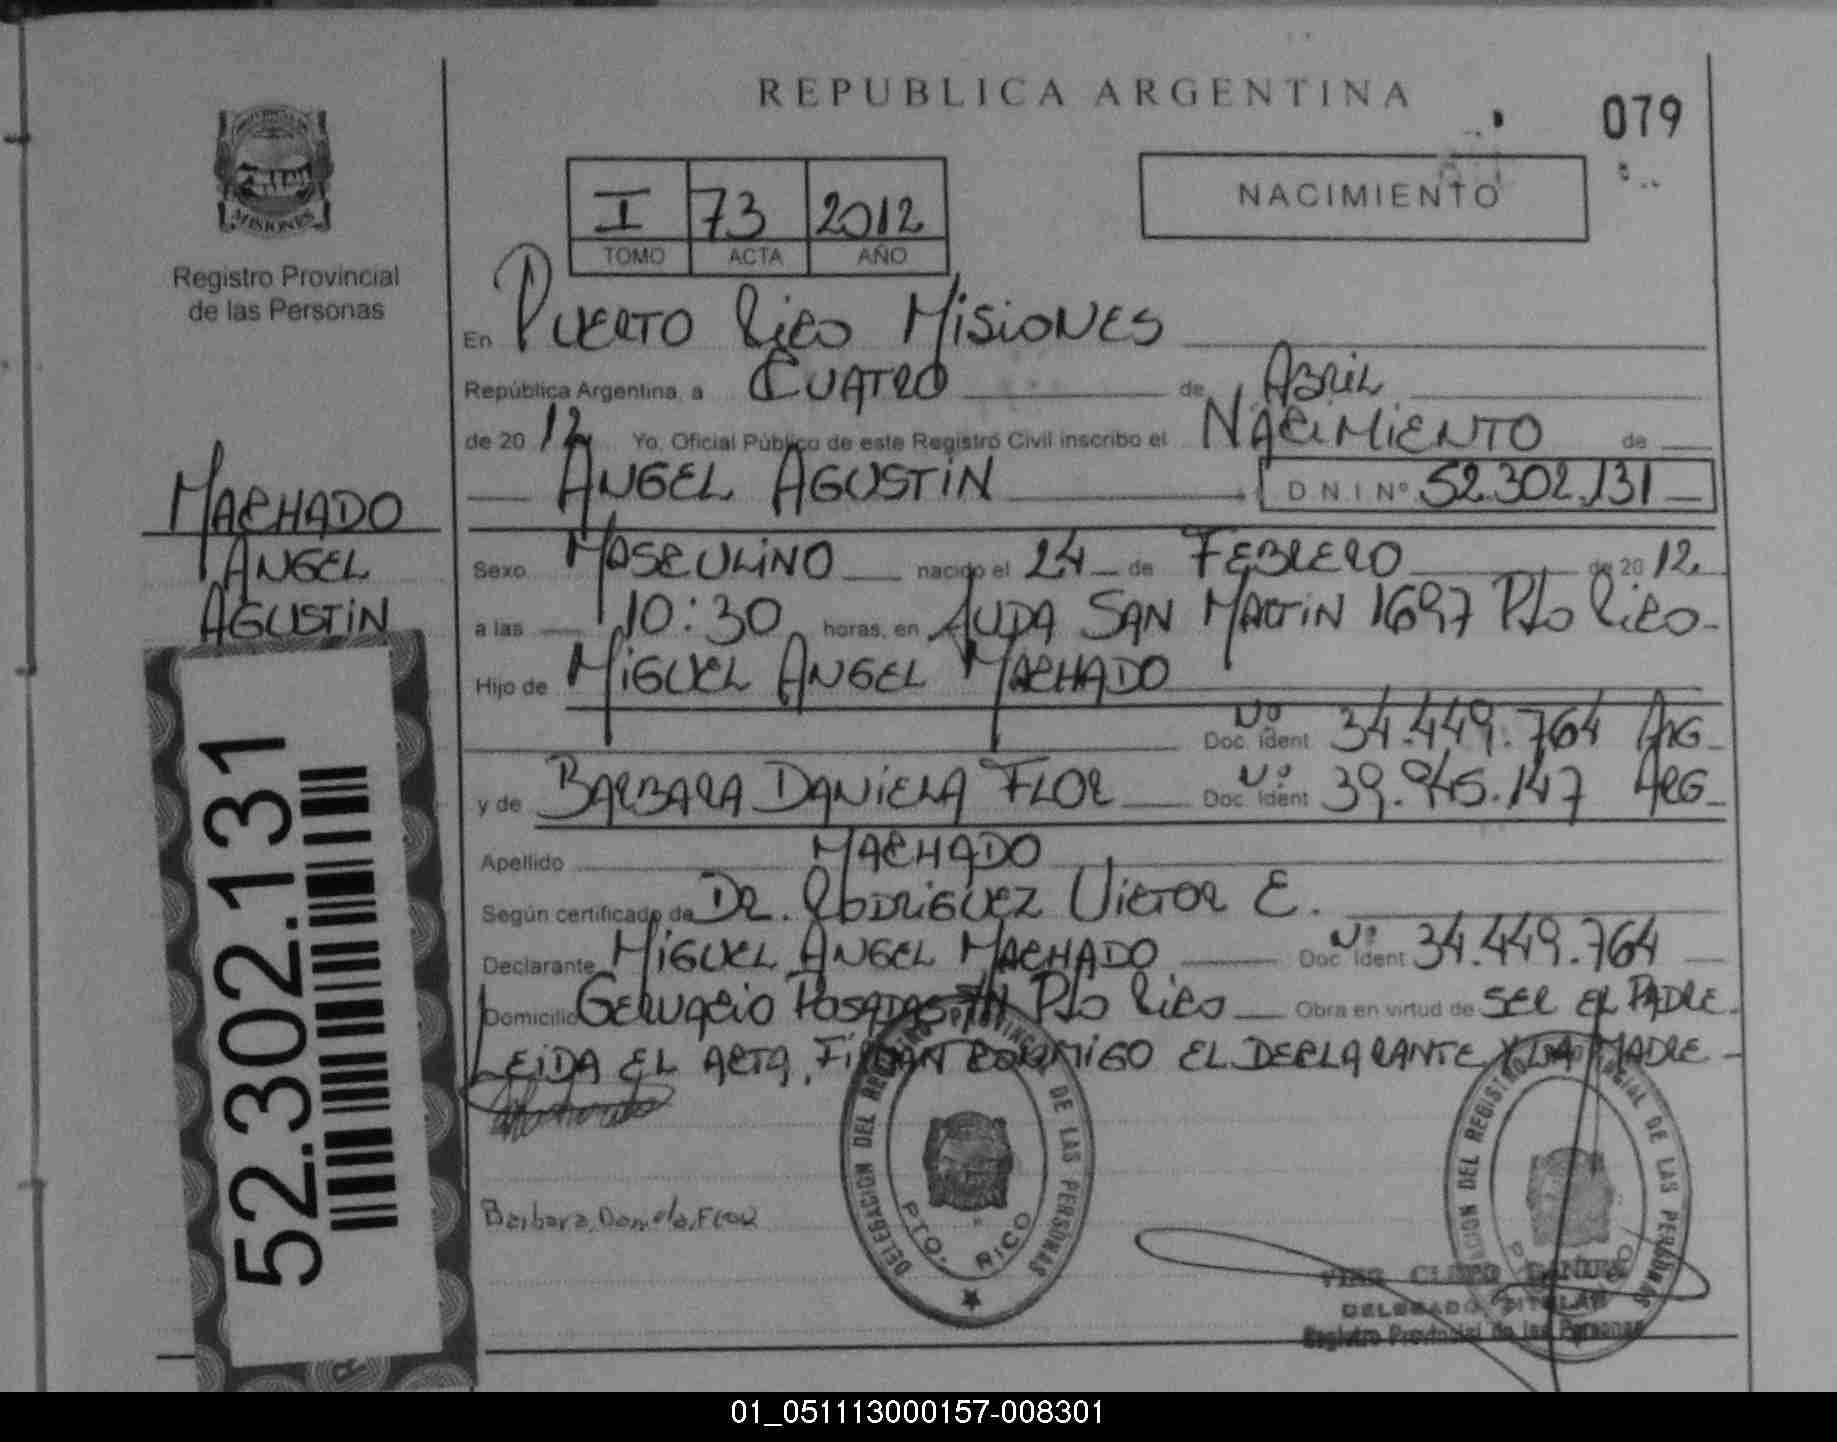 REPUBLICA ARGENTINA
079
MISIONES
Registro Provincial
de las Personas
I 73 2012
TOMO ACTA AÑO
NACIMIENTO
En PUERTO RICO MISIONES
República Argentina, a CUATRO de ABRIL
de 2012 Yo, Oficial Público de este Registro Civil inscribo el NACIMIENTO de
ANGEL AGUSTIN D N I Nº 52.302.131
MACHADO
ANGEL
AGUSTIN
Sexo MASCULINO nacido el 24 de FEBRERO de 2012
a las 10:30 horas, en AVDA SAN MARTIN 1697 Pto RICO
Hijo de MIGUEL ANGEL MACHADO
Doc. Ident Nº 34.449.764 ARG
y de BARBARA DANIELA FLOR Doc. Ident Nº 39.945.147 ARG
Apellido MACHADO
Según certificado de DR. RODRIGUEZ VICTOR E.
Declarante MIGUEL ANGEL MACHADO Doc. Ident Nº 34.449.764
Domicilio GERVACIO POSADAS Pto RICO Obra en virtud de SER EL PADRE
LEIDA EL ACTA, FIRMAN CONMIGO EL DECLARANTE Y LA MADRE
52.302.131
Barbara, Daniela, FLOR
DELEGACION DEL REGISTRO PROVINCIAL DE LAS PERSONAS
PTO. RICO
DELEGADO TITULAR
Registro Provincial de las Personas
01_051113000157-008301